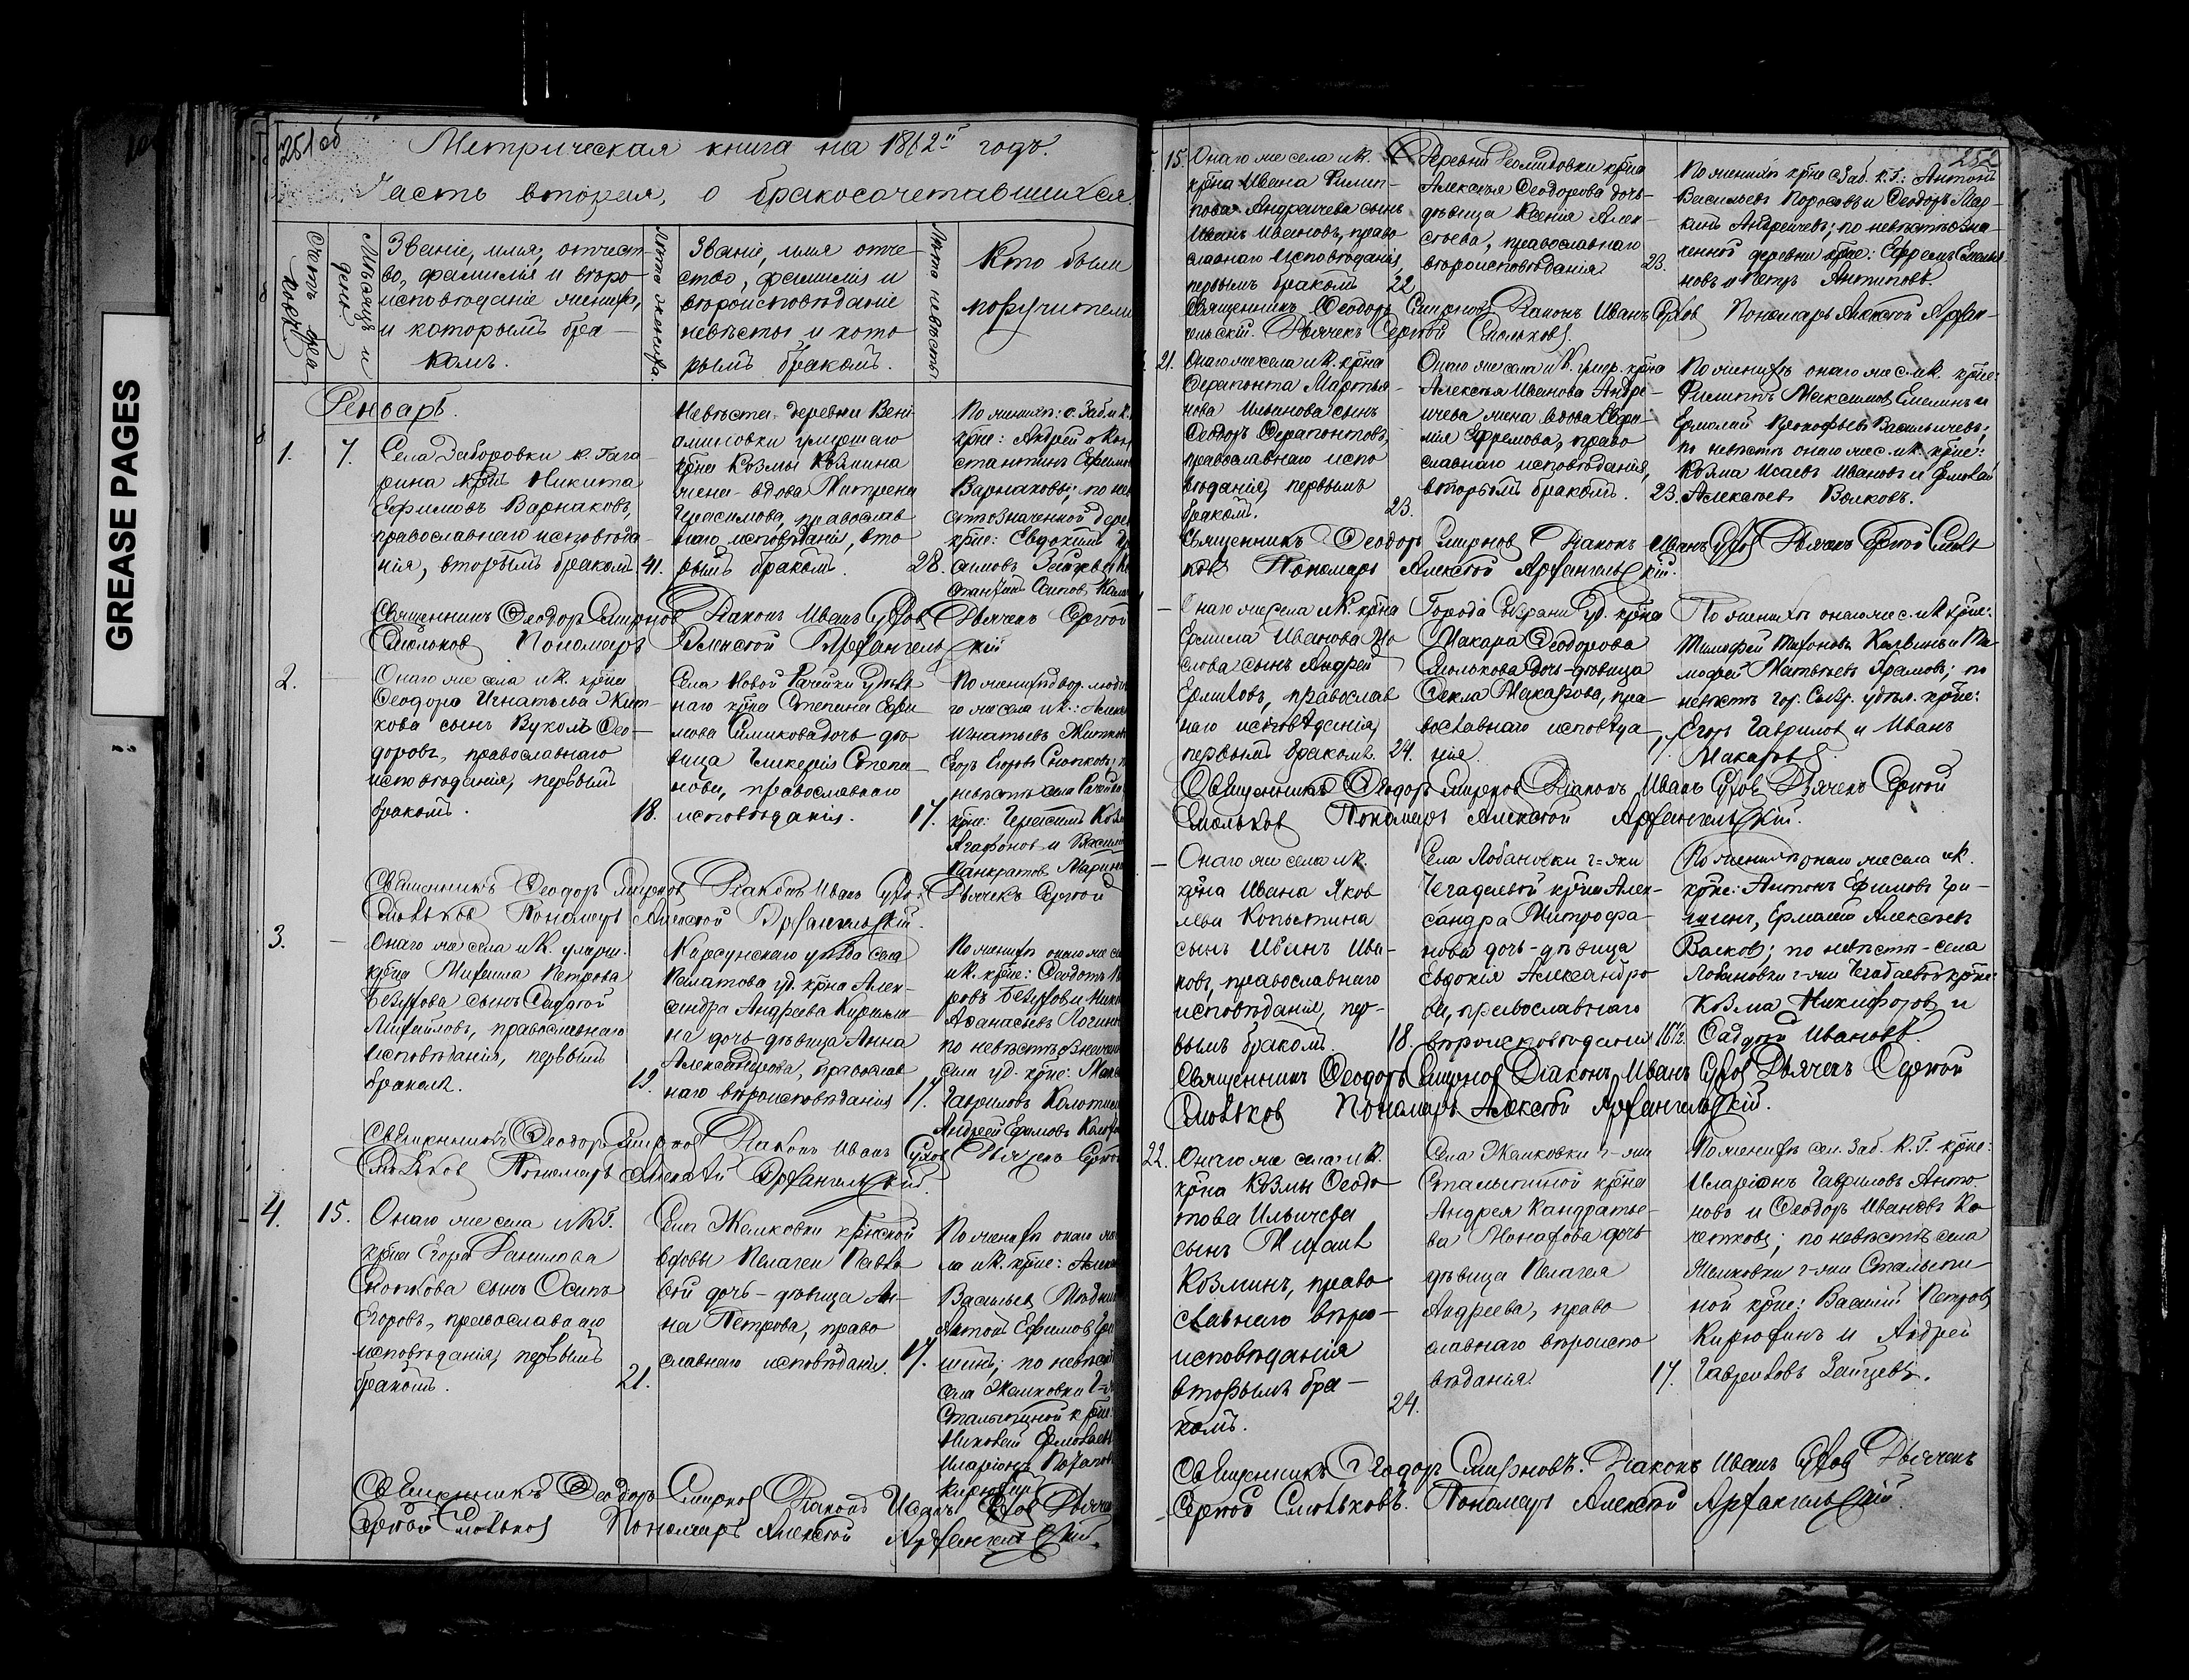 GREASE PAGES
251об
Метрическая книга на 1862й годъ.
Часть вторая, о бракосочетавшихся.
Счетъ браковъ.
Мѣсяцъ и день
Званіе, имя, отчест
во, фамилія и вѣро
исповѣданіе жениха,
и которымъ бра-
комъ.
Лѣта жениха.
Званіе, имя отче
ство, фамилія и
вѣроисповѣданіе
невѣсты и кото
рымъ бракомъ.
Лѣта невѣсты
Кто были
поручители
Генварь.
1.
7.
Села Заборовки к. Гага
рина крн Никита
Ефимовъ Варнаковъ,
православнаго исповѣда
нія, вторымъ бракомъ.
41.
Невѣста деревни Вені
аминовки умершаго
крна Козмы Козмина
жена вдова Матрена
Герасимова, православ
наго исповѣданія, вто
рымъ бракомъ.
28.
По женихѣ: с. Заб. и К.
крне: Андрей и Кон
стантинъ Ефимо
Варнаковы; по нев
означенной дере
крне: Евдокимъ
Священникъ Ѳеодоръ Смирновъ Діаконъ Иванъ Суховъ Дьячекъ Сергѣй
Смольковъ Пономарь Алексѣй Архангельскій
2.
Онаго же села и К. крна
Ѳеодора Игнатьева Жит-
кова сынъ Вуколъ Ѳео-
доровъ, православнаго
исповѣданія, первымъ
бракомъ.
18.
Села Новой Рачейки удѣль
наго крна Степана Ефи
мова Симикова дочь дѣ
вица Гликерія Степа
нова, православнаго
исповѣданія.
17.
По женихѣ двор. люди
го же села и К.: Алекс
Игнатьевъ Житков
Егоръ Егоровъ Снопковъ;
невѣстѣ села Рачейки
крне: Герасимъ Козм
Агафоновъ и Васил
Панкратовъ Марин
Священникъ Ѳеодоръ Смирновъ Діаконъ Иванъ Суховъ Дьячекъ Сергѣй
Смольковъ Пономарь Алексѣй Архангельскій.
3.
Онаго же села и К. умерш.
крна Михаила Петрова
Безухова сынъ Садофій
Михайловъ, православнаго
исповѣданія, первымъ
бракомъ.
19.
Карсунскаго уѣзда села
уд. крна Алек-
сандра Андреева
на дочь дѣвица Анна
Александрова, православ
наго вѣроисповѣданія
17.
По женихѣ онаго же се
и К. крне: Ѳеодотъ
ровъ Безуховъ и Ник
Аѳанасьевъ Логино
по невѣстѣ означен
села уд. крне:
Гавриловъ
Андрей Ефимовъ
Священникъ Ѳеодоръ Смирновъ Діаконъ Иванъ Суховъ Дьячекъ Сергѣй
Смольковъ Пономарь Алексѣй Архангельскій.
4.
15.
Онаго же села и К. Г.
крна Егора Данилова
Снопкова сынъ Осипъ
Егоровъ, православнаго
исповѣданія, первымъ
бракомъ.
21.
Села Жемковки крнской
вдовы Пелагеи Павло
вой дочь-дѣвица Ан-
на Петрова, право
славнаго исповѣданія.
17.
По женихѣ онаго же
ла и К. крне: Алек
Васильевъ
Антонъ Ефимовъ Гри
шинъ; по невѣстѣ
села Жемковки г-жи
Столыпиной крне:
Ермолаевъ
Иларіонъ Потапов
Кирюхинъ
Священникъ Ѳеодоръ Смирновъ Діаконъ Иванъ Суховъ Дьячекъ
Сергѣй Смольковъ Пономарь Алексѣй Архангельскій.
252
15.
Онаго же села и К.
крна Ивана Филип-
пова Андреичева сынъ
Иванъ Ивановъ, право
славнаго исповѣданія,
первымъ бракомъ
22
Деревни крна
Алексѣя Ѳеодорова дочь-
дѣвица Ксенія Алек-
сѣева, православнаго
вѣроисповѣданія
23.
По женихѣ крне с. Заб. К. Г.: Антонъ
Васильевъ и Ѳеодоръ Мар-
кинъ Андреичевъ; по невѣстѣ озна-
ченной деревни крне: Ефремъ Емелья
новъ и Петръ Антиповъ.
Священникъ Ѳеодоръ Смирновъ Діаконъ Иванъ Суховъ Пономарь Алексѣй Архан-
гельскій. Дьячекъ Сергѣй Смольковъ.
21.
Онаго же села и К. крна
Ферапонта Мартья-
нова Ильинова сынъ
Ѳеодоръ Ферапонтовъ,
православнаго испо
вѣданія, первымъ
бракомъ.
23.
Онаго же села и К. умер. крна
Алексѣя Иванова Андре-
ичева жена вдова Евфи-
мія Ефремова, право
славнаго исповѣданія,
вторымъ бракомъ.
23.
По женихѣ онаго же с. и К. крне:
Филиппъ Максимовъ Емелинъ и
Ермолай Прокофьевъ Васильичевъ;
по невѣстѣ онаго же с. и К. крне:
Козма Исаевъ Ивановъ и Ермолай
Алексѣевъ Волковъ.
Священникъ Ѳеодоръ Смирновъ Діаконъ Иванъ Суховъ Дьячекъ Сергѣй Смоль
ковъ Пономарь Алексѣй Архангельскій.
Онаго же села и К. крна
Ермила Иванова Мо
слова сынъ Андрей
Ермиловъ, православ
наго исповѣданія,
первымъ бракомъ.
24.
Города Сызрани уд. крна
Макара Ѳеодорова
Смолькова дочь-дѣвица
Ѳекла Макарова, пра-
вославнаго исповѣда
нія.
17.
По женихѣ онаго же с. и К. крне:
Тимофей Тихоновъ и Ти
мофей Матвѣевъ Храмовъ; по
невѣстѣ гор. Сызр. удѣл. крне:
Егоръ Гавриловъ и Иванъ
Макаровъ.
Священникъ Ѳеодоръ Смирновъ Діаконъ Иванъ Суховъ Дьячекъ Сергѣй
Смольковъ Пономарь Алексѣй Архангельскій.
Онаго же села и К.
крна Ивана Яков
лева Копытина
сынъ Иванъ Ива-
новъ, православнаго
исповѣданія, пер-
вымъ бракомъ.
18.
Села Лобановки г-жи
Чегадаевой крна Алек-
сандра Митрофа-
нова дочь-дѣвица
Евдокія Александро
ва, православнаго
вѣроисповѣданія
16½.
По женихѣ онаго же села и К.
крне: Антонъ Ефимовъ Гри-
шинъ, Ермолай Алексѣевъ
Волковъ; по невѣстѣ-села
Лобановки г-жи Чегадаевой крне:
Козма Никифоровъ и
Садофій Ивановъ.
Священникъ Ѳеодоръ Смирновъ Діаконъ Иванъ Суховъ Дьячекъ Сергѣй
Смольковъ Пономарь Алексѣй Архангельскій.
22.
Онаго же села и К.
крна Козмы Ѳеодо
това Ильичева
сынъ Михаилъ
Козминъ, право
славнаго вѣро-
исповѣданія
вторымъ бра-
комъ.
24.
Села Жемковки г-жи
Столыпиной крна
Андрея Кандратье-
ва Монахова дочь
дѣвица Пелагея
Андреева, право
славнаго вѣроиспо
вѣданія.
17.
По женихѣ сел. Заб. К. Г. крне:
Иларіонъ Гавриловъ Анто
новъ и Ѳеодоръ Ивановъ Ко
четковъ; по невѣстѣ села
Жемковки г-жи Столыпи-
ной крне: Василій Петровъ
Кирюхинъ и Андрей
Гавриловъ Зайцевъ.
Священникъ Ѳеодоръ Смирновъ. Діаконъ Иванъ Суховъ Дьячекъ
Сергѣй Смольковъ. Пономарь Алексѣй Архангельскій.